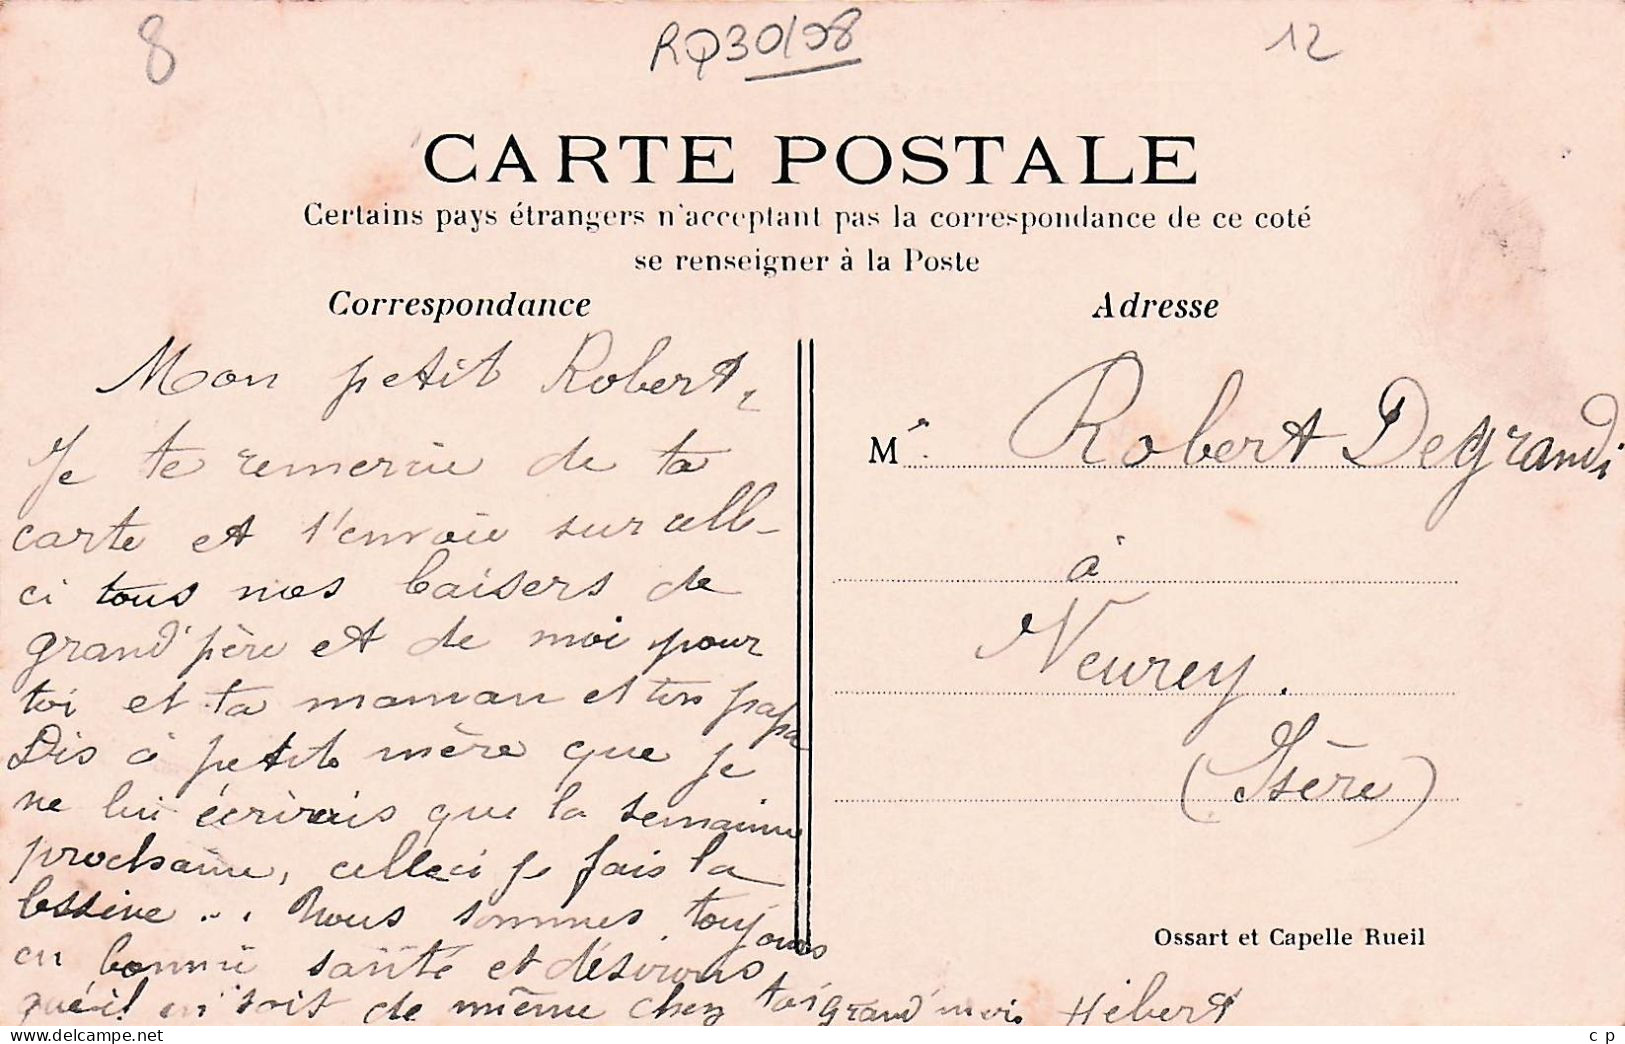 8
RQ30/98
12
CARTE POSTALE
Certains pays étrangers n'acceptant pas la correspondance de ce coté
se renseigner à la Poste
Correspondance
Adresse
Mon petit Robert,
Je te remercie de ta
carte et t'envoie sur celle-
ci tous nos baisers de
grand'père et de moi pour
toi et ta maman et ton papa
Dis à petite mère que je
ne lui écrirais que la semaine
prochaine, celleci je fais la
lessive... Nous sommes toujours
en bonne santé et désirons
qu'il en soit de même chez toi grand'mère Hébert
Mr. Robert Degrandi
à
Veurey.
(Isère)
Ossart et Capelle Rueil
c p